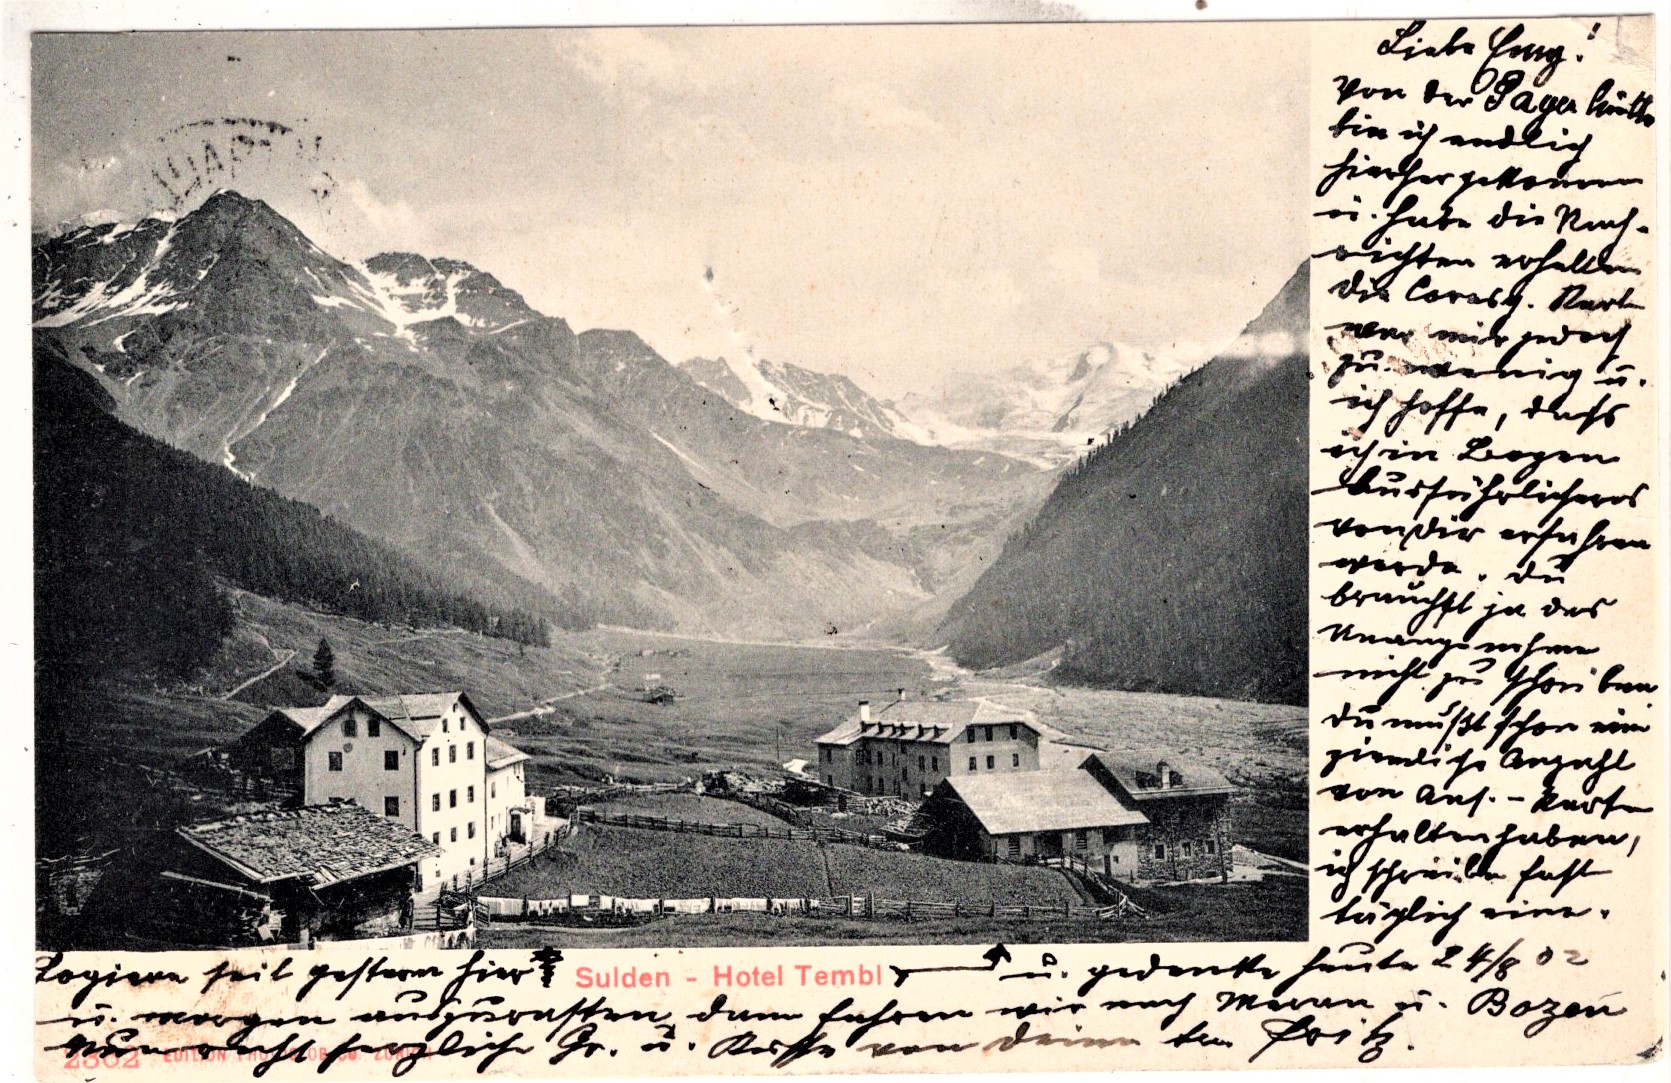 Liebe
Von der Payer hütte
bin ich endlich
hierher gekommen
u. habe die Nach-
richten erhalten
Die Corresp. Karte
war mir jedoch
zu wenig u.
ich hoffe, dass
ich in Bozen
Ausführlicheres
von Dir erfahren
werde. Du
brauchst ja das
Unangenehme
nicht zu schreiben
Du mußt schon eine
ziemliche Anzahl
von Ans. - Karten
erhalten haben,
ich schreibe fast
täglich eine.
Logieren seit gestern hier
Sulden - Hotel Tembl
u. gedenke heute 24/8 02
u. morgen auszurasten, dann fahren wir nach Meran u. Bozen
Nun recht herzliche Gr. u. Küsse von Deinem Fritz.
2302 EDITION PHOTOGLOB Co. ZÜRICH